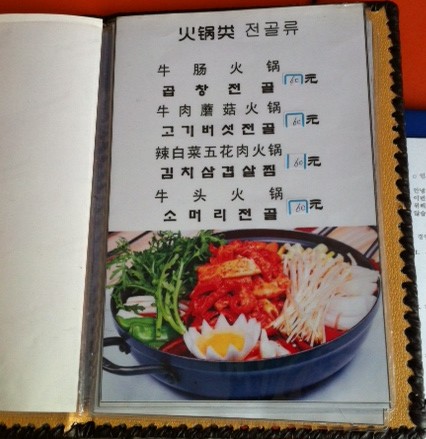 火锅类 전골류
牛肠火锅
곱창전골 60元
牛肉蘑菇火锅
고기버섯전골 60元
辣白菜五花肉火锅
김치삼겹살찜 60元
牛头火锅
소머리전골 60元